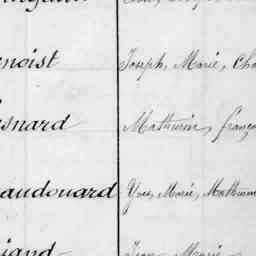 noist Joseph, Marie, Cha
snard Mathurin, franço
audouard Yves, Marie, Mathurin
Jean Marie